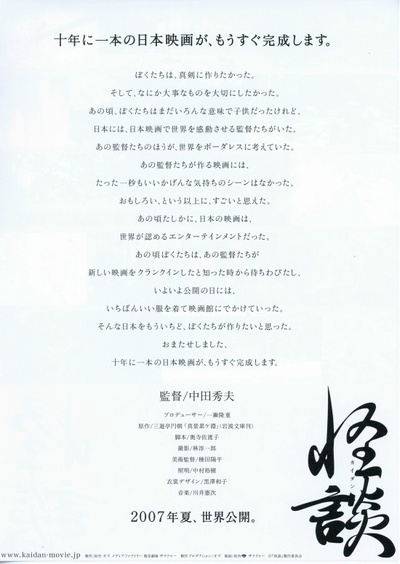 十年に一本の日本映画が、もうすぐ完成します。
ぼくたちは、真剣に作りたかった。
そして、なにか大事なものを大切にしたかった。
あの頃、ぼくたちはまだいろんな意味で子供だったけれど、
日本には、日本映画で世界を感動させる監督たちがいた。
あの監督たちのほうが、世界をボーダレスに考えていた。
あの監督たちが作る映画には、
たった一秒もいいかげんな気持ちのシーンはなかった。
おもしろい、という以上に、すごいと思えた。
あの頃たしかに、日本の映画は、
世界が認めるエンターテインメントだった。
あの頃ぼくたちは、あの監督たちが
新しい映画をクランクインしたと知った時から待ちわびたし、
いよいよ公開の日には、
いちばんいい服を着て映画館にでかけていった。
そんな日本をもういちど、ぼくたちが作りたいと思った。
おまたせしました、
十年に一本の日本映画が、もうすぐ完成します。
監督/中田秀夫
プロデューサー/一瀬隆重
原作/三遊亭円朝「真景累ケ淵」(岩波文庫刊)
脚本/奥寺佐渡子
撮影/林淳一郎
美術監督/種田陽平
照明/中村裕樹
衣裳デザイン/黒澤和子
音楽/川井憲次
2007年夏、世界公開。
怪談
カイダン
www.kaidan-movie.jp